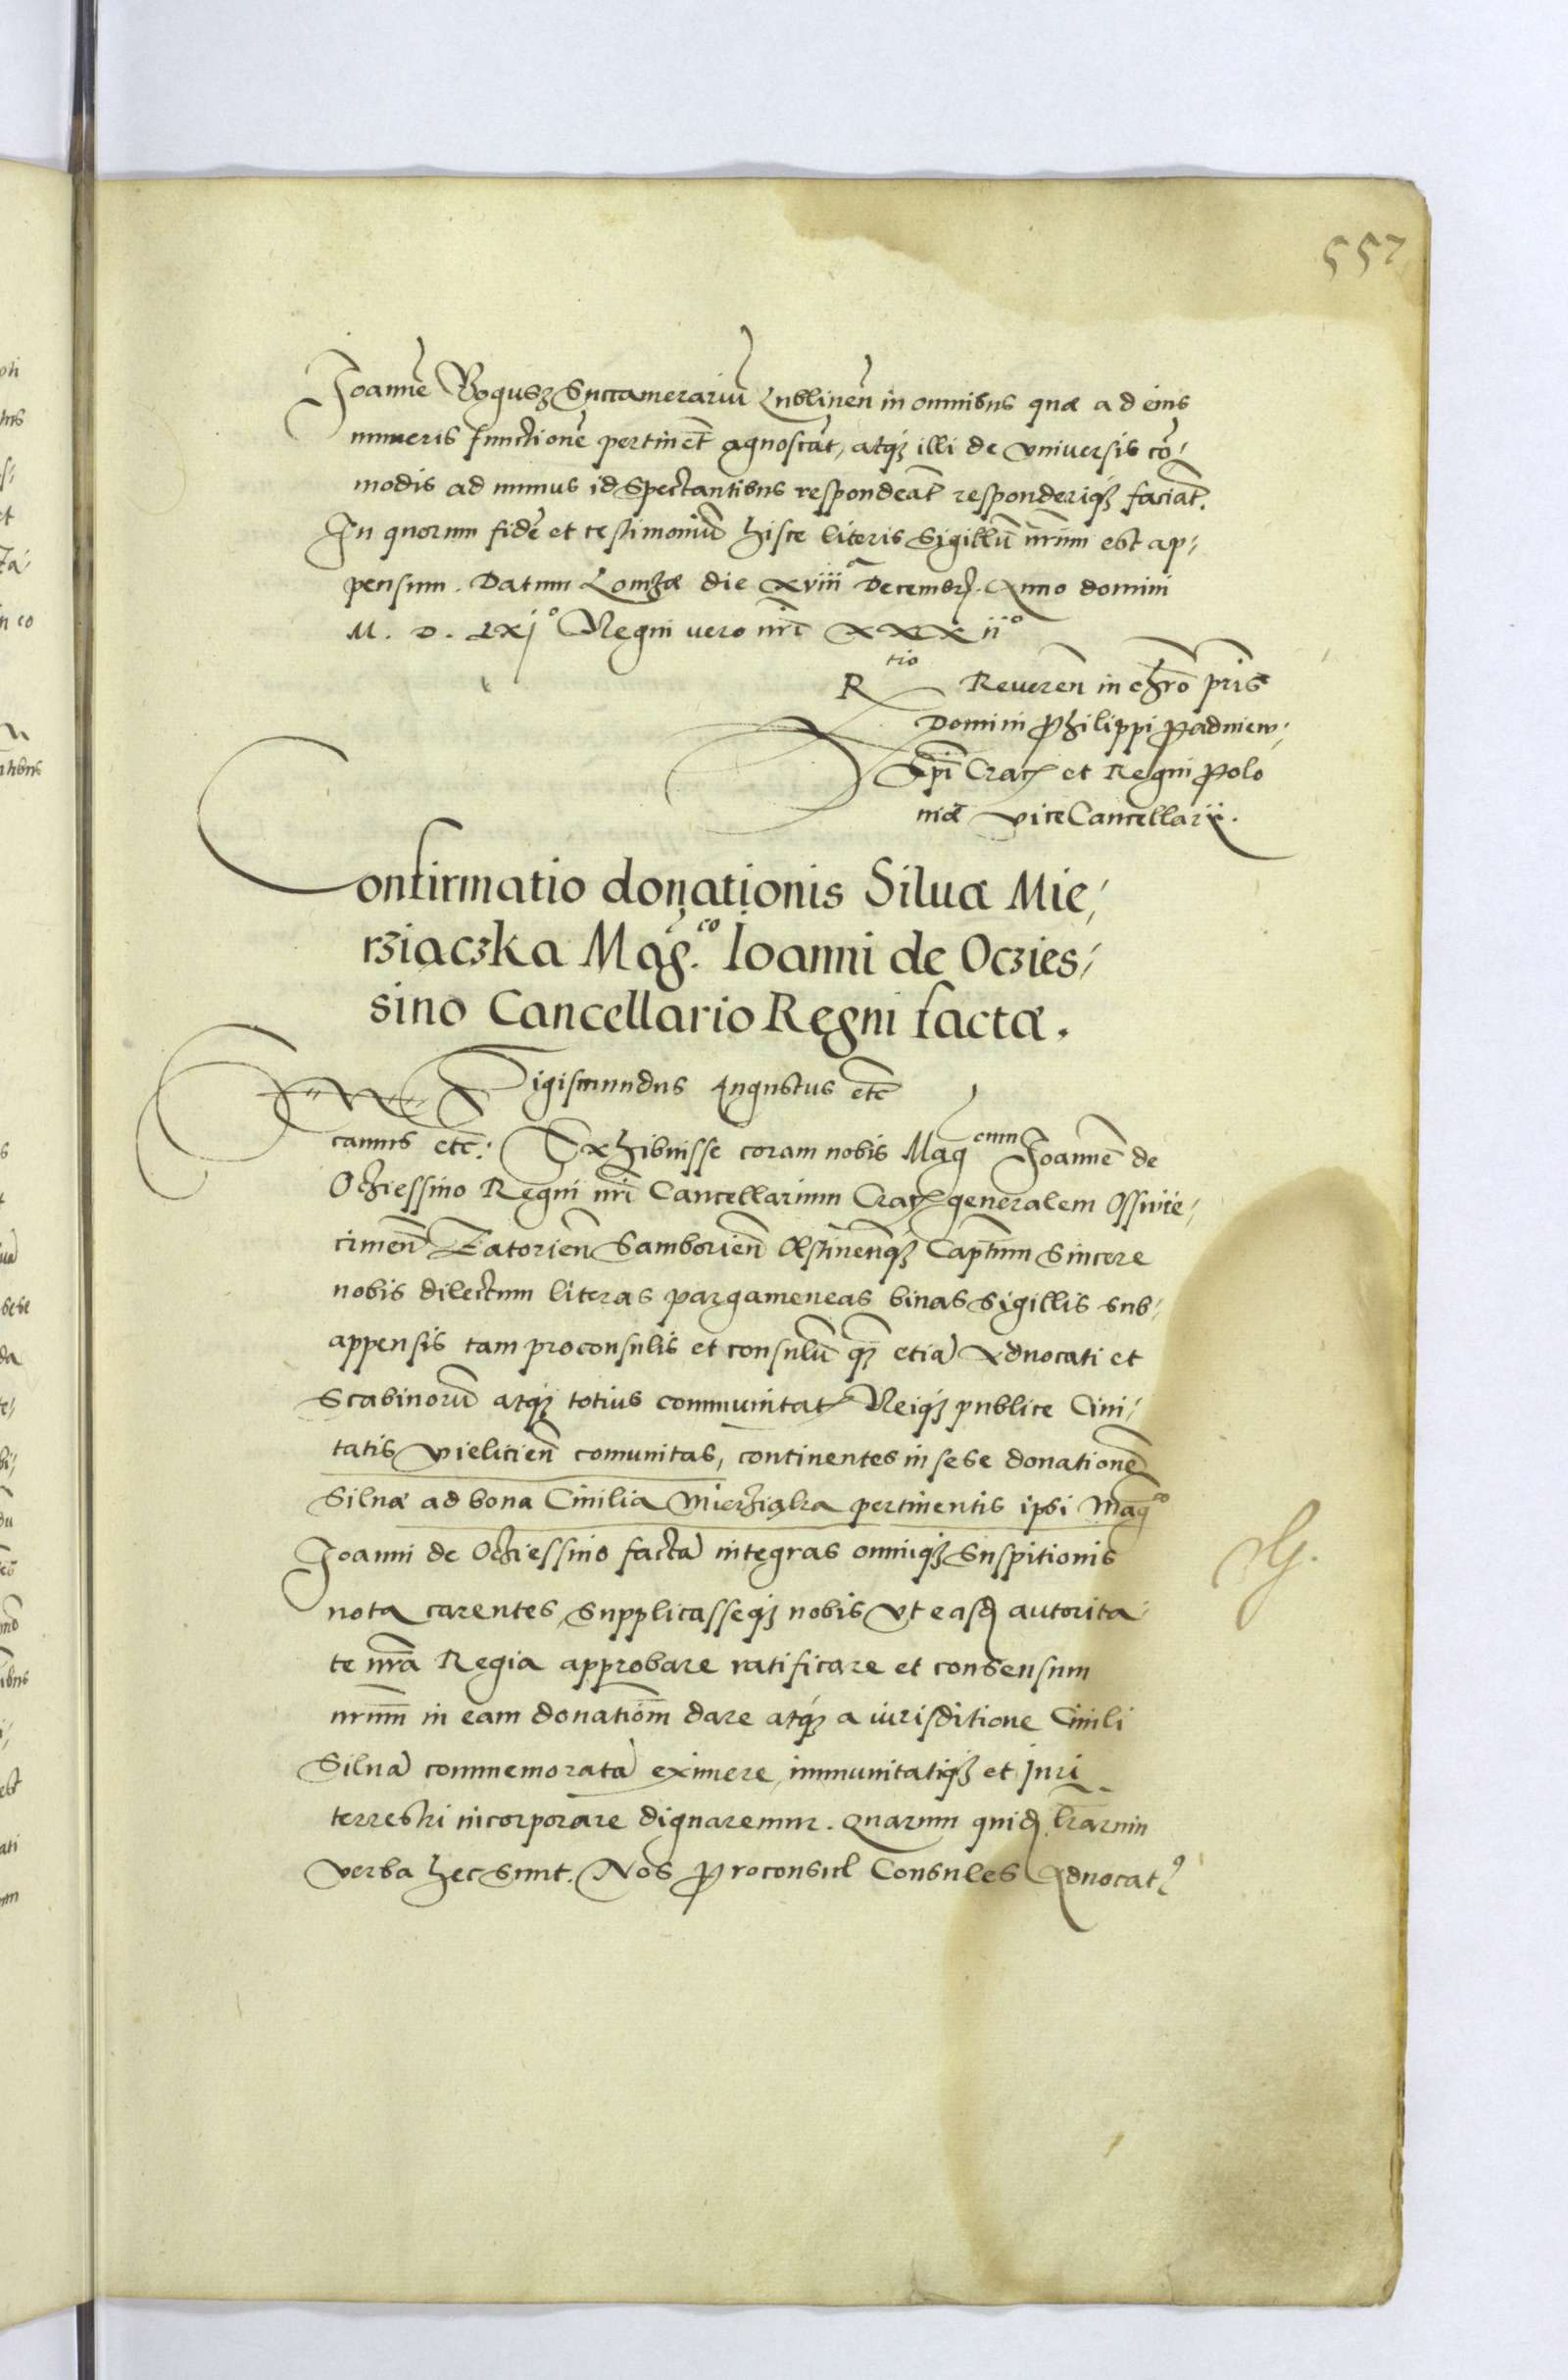 557
Joannē Bogusz Succamerariū Lublineñ in omnibus quæ ad eius
muneris functionē pertinēt agnoscāt, atqȝ illi de vniversis cō-
modis ad munus id spectantibus respondeāt responderiqȝ faciāt.
In quorum fidē et testimoniū hisce literis sigillū nrūm est ap-
pensum. Datum Lomzæ die xviiiᵃ Decembrꝭ. Anno domini
M. D. Lxjᵒ Regni vero nrī xxxiiᵒ
Rᵗⁱᵒ Reveren in chro pris
Domini Philippi Padniew-
Epī Cracꝭ et Regni Polo
niæ viceCancellarij.
Confirmatio donationis Siluæ Mie-
rziączka Mag.ᶜᵒ Ioanni de Oczies-
sino Cancellario Regni factæ.
Sigismundus Augustus etc̄
camus etc̄: Exhibuisse coram nobis Magᶜᵘᵐ Joannē de
Ocziessino Regni nrī Cancellarium Cracꝭ generalem Osswie-
cimeñ Zatorieñ Samborieñ Olstineñqȝ Captnm sincere
nobis dilectum literas pargameneas binas sigillis sub-
appensis tam proconsulis et consulū qȝ etiā Aduocati et
Scabinorū atqȝ totius communitatꝭ Reiqȝ publice Ciui-
tatis vielicieñ comunitas, continentes in sese donationē
Siluæ ad bona Ciuilia Mierziączka pertinentis ipsi Magᶜᵒ
Joanni de Ocziessino factā integras omniqȝ suspitionis
nota carentes, supplicasseqȝ nobis vt easdꝭ autorita-
te nrā Regia approbare ratificare et consensum
nrūm in eam donatiōm dare atqȝ a iurisditione Ciuili
Siluā commemoratā eximere, immunitatiqȝ et juri
terrestri incorporare dignaremur. Quarum quidꝭ lrārum
verba hec sunt. Nos Proconsul Consules Aduocatꝰ